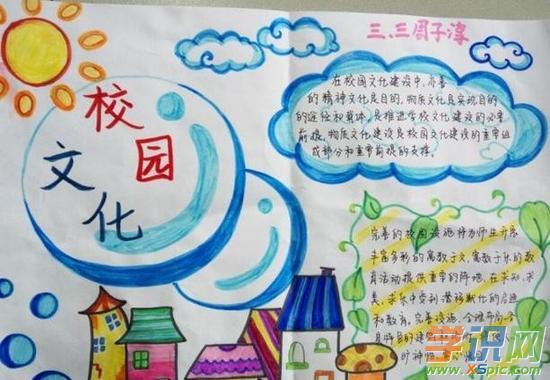 三、三周子淳
校园
文化
在校园文化建设中,完善
的精神文化是目的,物质文化是实现目的
的途径和载体,是推进学校文化建设的必要
前提,物质文化建设是校园文化建设的重要组
成部分和重要前提的支撑。
完善的校园设施将为师生开展
丰富多彩的寓教于文,寓教于乐的教
育活动提供重要的阵地,在求知、求
美、求乐中受到潜移默化的启迪
和教育。完善设施、合理布局、各
具特色的建
时神怡
学识网
www.XSpic.com